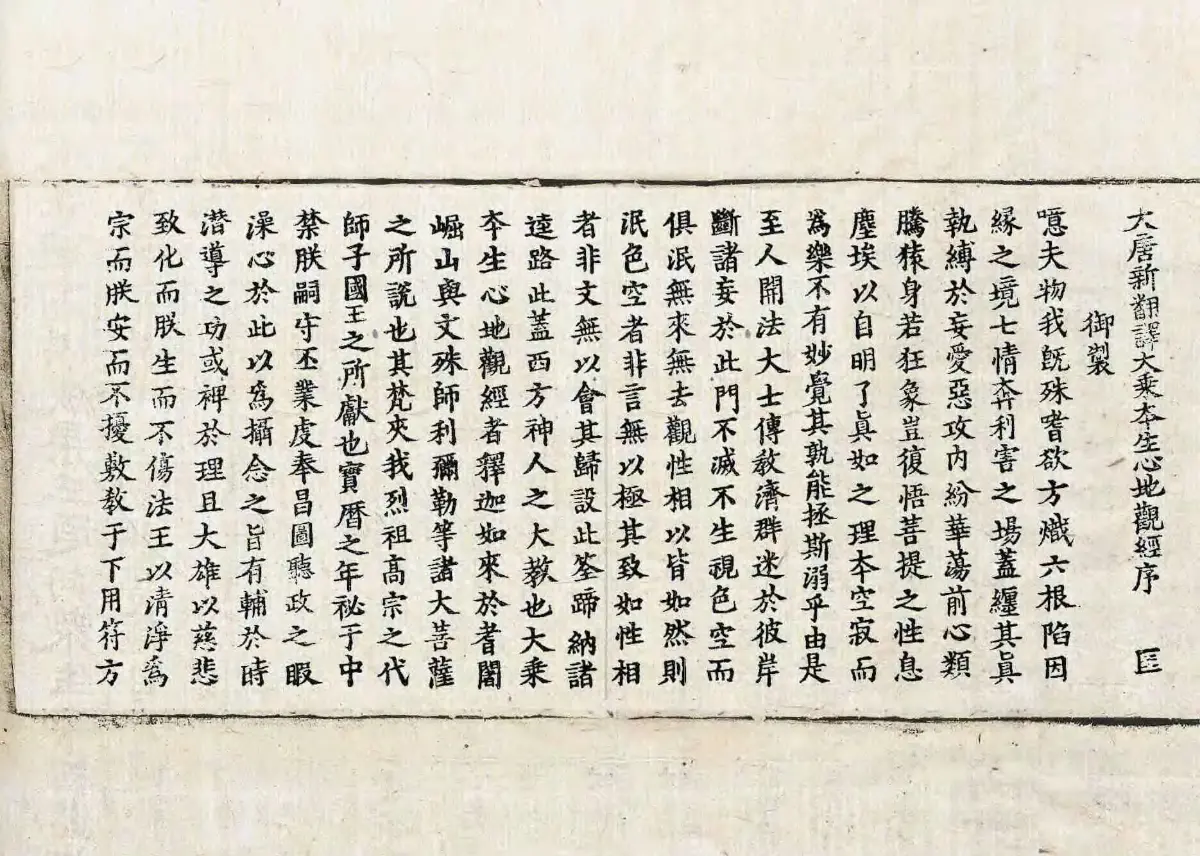 大唐新翻譯大乘夲生心地觀經序 匡
御製
噫夫物我旣殊嗜欲方熾六根陷因
緣之境七情奔利害之場蓋纏其眞
執縛於妄愛惡攻內紛華蕩前心類
騰猿身若狂象豈復悟菩提之性息
塵埃以自明了眞如之理夲空寂而
爲樂不有妙覺其孰能拯斯溺乎由是
至人開法大士傳敎濟群迷於彼岸
斷諸妄於此門不滅不生視色空而
俱泯無來無去觀性相以皆如然則
泯色空者非言無以極其致如性相
者非文無以會其歸設此筌蹄納諸
逵路此蓋西方神人之大敎也大乘
夲生心地觀經者釋迦如來於耆闍
崛山與文殊師利彌勒等諸大菩薩
之所說也其梵夾我烈祖高宗之代
師子國王之所獻也寶曆之年祕于中
禁朕嗣守丕業虔奉昌圖聽政之暇
澡心於此以爲攝念之旨有輔於時
潛導之功或裨於理且大雄以慈悲
致化而朕生而不傷法王以清淨爲
宗而朕安而不擾敷敎于下用符方